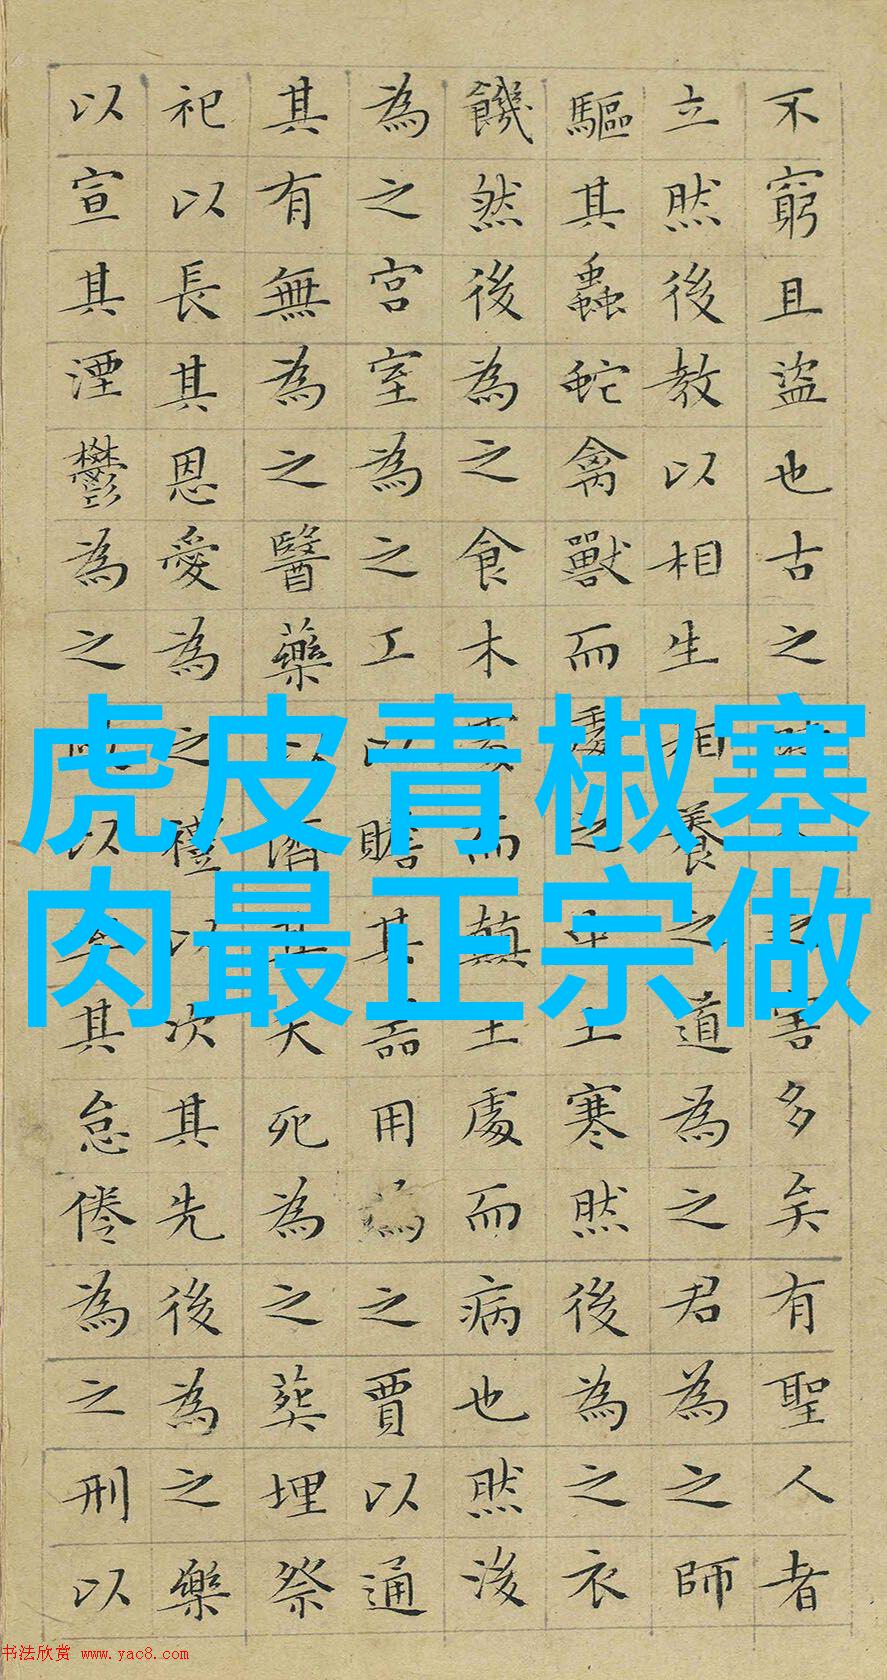 虎皮青椒塞
肉最正宗做
不窮且盜也古之害多矣有聖人者
立然後教以相生相養之道為之君為之師
驅其蟲蛇禽獸而處之中土寒然後為之衣
饑然後為之食木處而土處而病也然後
為之宮室為之工以贍其器用為之賈以通
其有無為之醫藥以濟其夭死為之葬埋祭
祀以長其恩愛為之禮以次其先後為之樂
以宣其湮鬱為之以其怠倦為之刑以
书法欣赏 www.yac8.com